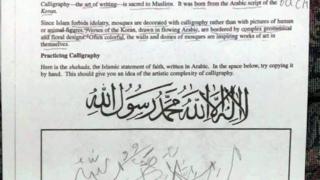 Calligraphy—the art of writing—is sacred to Muslims. It was born from the Arabic script of the
Koran.
Since Islam forbids idolatry, mosques are decorated with calligraphy rather than with pictures of human or
animal figures. Verses of the Koran, drawn in flowing Arabic, are bordered by complex geometrical
and floral designs. Often colorful, the walls and domes of mosques are inspiring works of art in
themselves.
Practicing Calligraphy
Here is the shahada, the Islamic statement of faith, written in Arabic. In the space below, try copying it
by hand. This should give you an idea of the artistic complexity of calligraphy.
لا إله إلا الله محمد رسول الله